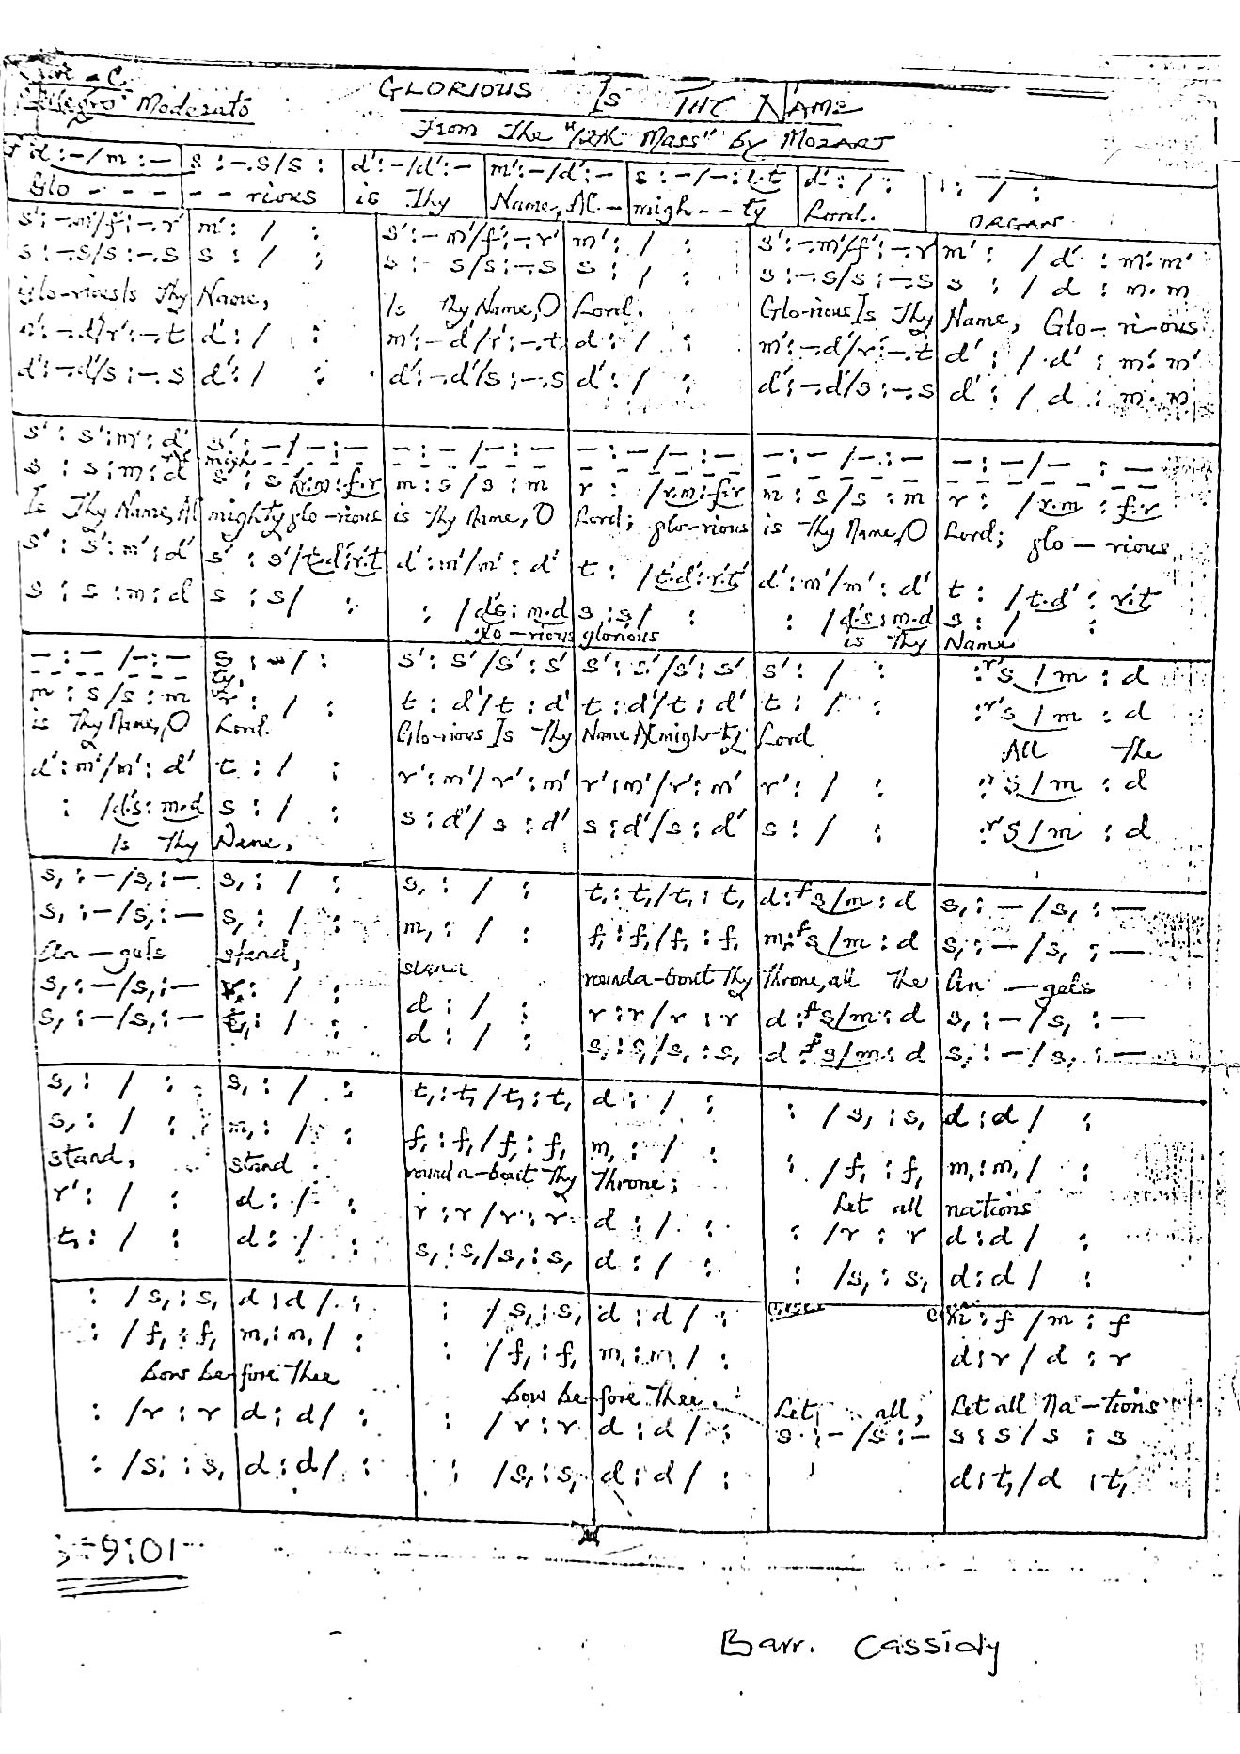 GLORIOUS Is THE NAME
Allegro Moderato
From The "12th Mass" by MOZART
d : - / m : - | s : -. s / s : | d' : - / d' : - | m' : - / d' : - | s : - / - : l.t | d' : / : | : / :
Glo - - - - - - rious is Thy Name, Al - migh - - ty Lord. ORGAN
s' : -. m' / f' : -. r' | m' : / : | s' : - m' / f' : -. r' | m' : / : | s' : -. m' / f' : -. r' | m' : / d' : m'. m'
s : -. s / s : -. s | s : / : | s : - s / s : -. s | s : / : | s : -. s / s : -. s | s : / d : m. m
Glo-rious Is Thy Name, Is Thy Name, O Lord. Glo-rious Is Thy Name, Glo - ri - ous
m' : -. d' / r' : -. t | d' : / : | m' : - d' / r' : -. t | d' : / : | m' : -. d' / r' : -. t | d' : / d' : m'. m'
d' : -. d' / s : -. s | d' : / : | d' : -. d' / s : -. s | d' : / : | d' : -. d' / s : -. s | d' : / d : m. m
s' : s' : m' : d' | s' : - / - : - | - : - / - : - | - : - / - : - | - : - / - : - | - : - / - : -
migh
s : s : m : d | s : s / r.m : f.r | m : s / s : m | r : / r.m : f.r | m : s / s : m | r : / r.m : f.r
Is Thy Name, Al mighty glo-rious is Thy Name, O Lord; glo-rious is Thy Name, O Lord; glo - rious
s' : s' : m' : d' | s' : s' / t.d' : r'.t | d' : m' / m' : d' | t : / t.d' : r'.t | d' : m' / m' : d' | t : / t.d' : r'.t
s : s : m : d | s : s / : | : / d's : m.d | s : s / : | : / d'.s : m.d | s : / :
Glo-rious glorious is Thy Name
- : - / - : - | s : - / : | s' : s' / s' : s' | s' : s' / s' : s' | s' : / : | : r's / m : d
ty,
m : s / s : m | r : / : | t : d' / t : d' | t : d' / t : d' | t : / : | : r's / m : d
is Thy Name, O Lord. Glo-rious Is Thy Name Almigh-ty Lord All The
d' : m' / m' : d' | t : / : | r' : m' / r' : m' | r' : m' / r' : m' | r' : / : | : r's / m : d
: / d's : m.d | s : / : | s : d' / s : d' | s : d' / s : d' | s : / : | : r's / m : d
Is Thy Name.
s, : - / s, : - | s, : / : | s, : / : | t, : t, / t, : t, | d : f s / m : d | s, : - / s, : -
s, : - / s, : - | s, : / : | m, : / : | f, : f, / f, : f, | m, : f s / m : d | s, : - / s, : -
An - gels stand, stand rounda-bout Thy Throne, all the An - gels
s, : - / s, : - | r : / : | d : / : | r : r / r : r | d : f s / m : d | s, : - / s, : -
s, : - / s, : - | t, : / : | d : / : | s, : s, / s, : s, | d : f s / m : d | s, : - / s, : -
s, : / : | s, : / : | t, : t, / t, : t, | d : / : | : / s, : s, | d : d / :
s, : / : | m, : / : | f, : f, / f, : f, | m, : / : | : / f, : f, | m, : m, / :
stand, stand round a-bout Thy Throne; Let all nations
r' : / : | d : / : | r : r / r : r | d : / : | : / r : r | d : d / :
t, : / : | d : / : | s, : s, / s, : s, | d : / : | : / s, : s, | d : d / :
: / s, : s, | d : d / : | : / s, : s, | d : d / : | m : f / m : f
: / f, : f, | m, : m, / : | : / f, : f, | m, : m, / : | d : r / d : r
bow before Thee bow before Thee. Let all, Let all Na-tions
: / r : r | d : d / : | : / r : r | d : d / : | s : - / s : - | s : s / s : s
: / s, : s, | d : d / : | : / s, : s, | d : d / : | d : t, / d : t,
Barr. Cassidy